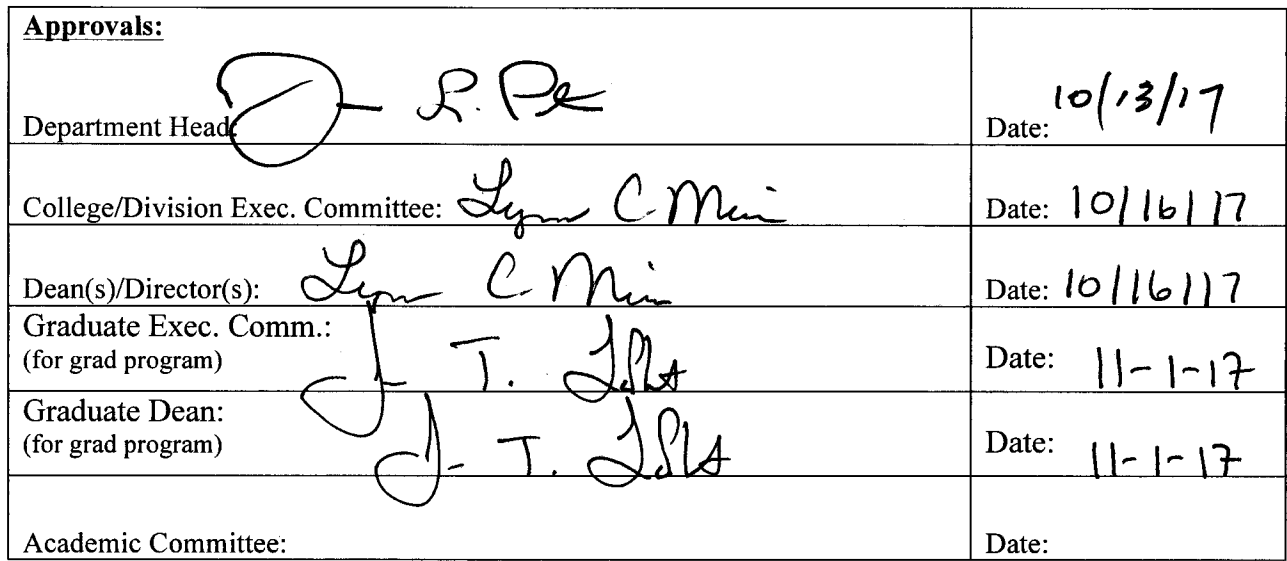 Approvals:
Department Head:
Date: 10/13/17
College/Division Exec. Committee: Lynn C
Date: 10/16/17
Dean(s)/Director(s): Lynn C
Date: 10/16/17
Graduate Exec. Comm.:
(for grad program)
T.
Date: 11-1-17
Graduate Dean:
(for grad program)
T.
Date: 11-1-17
Academic Committee:
Date: